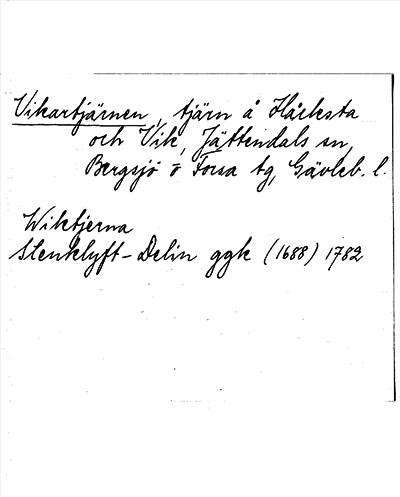 Vikartjärnen, tjärn å Hårksta
och Vik, Jättendals sn,
Bergsjö o Forsa tg, Gävleb. l.
Wiktjerna
Stenklyft-Delin ggk (1688) 1782